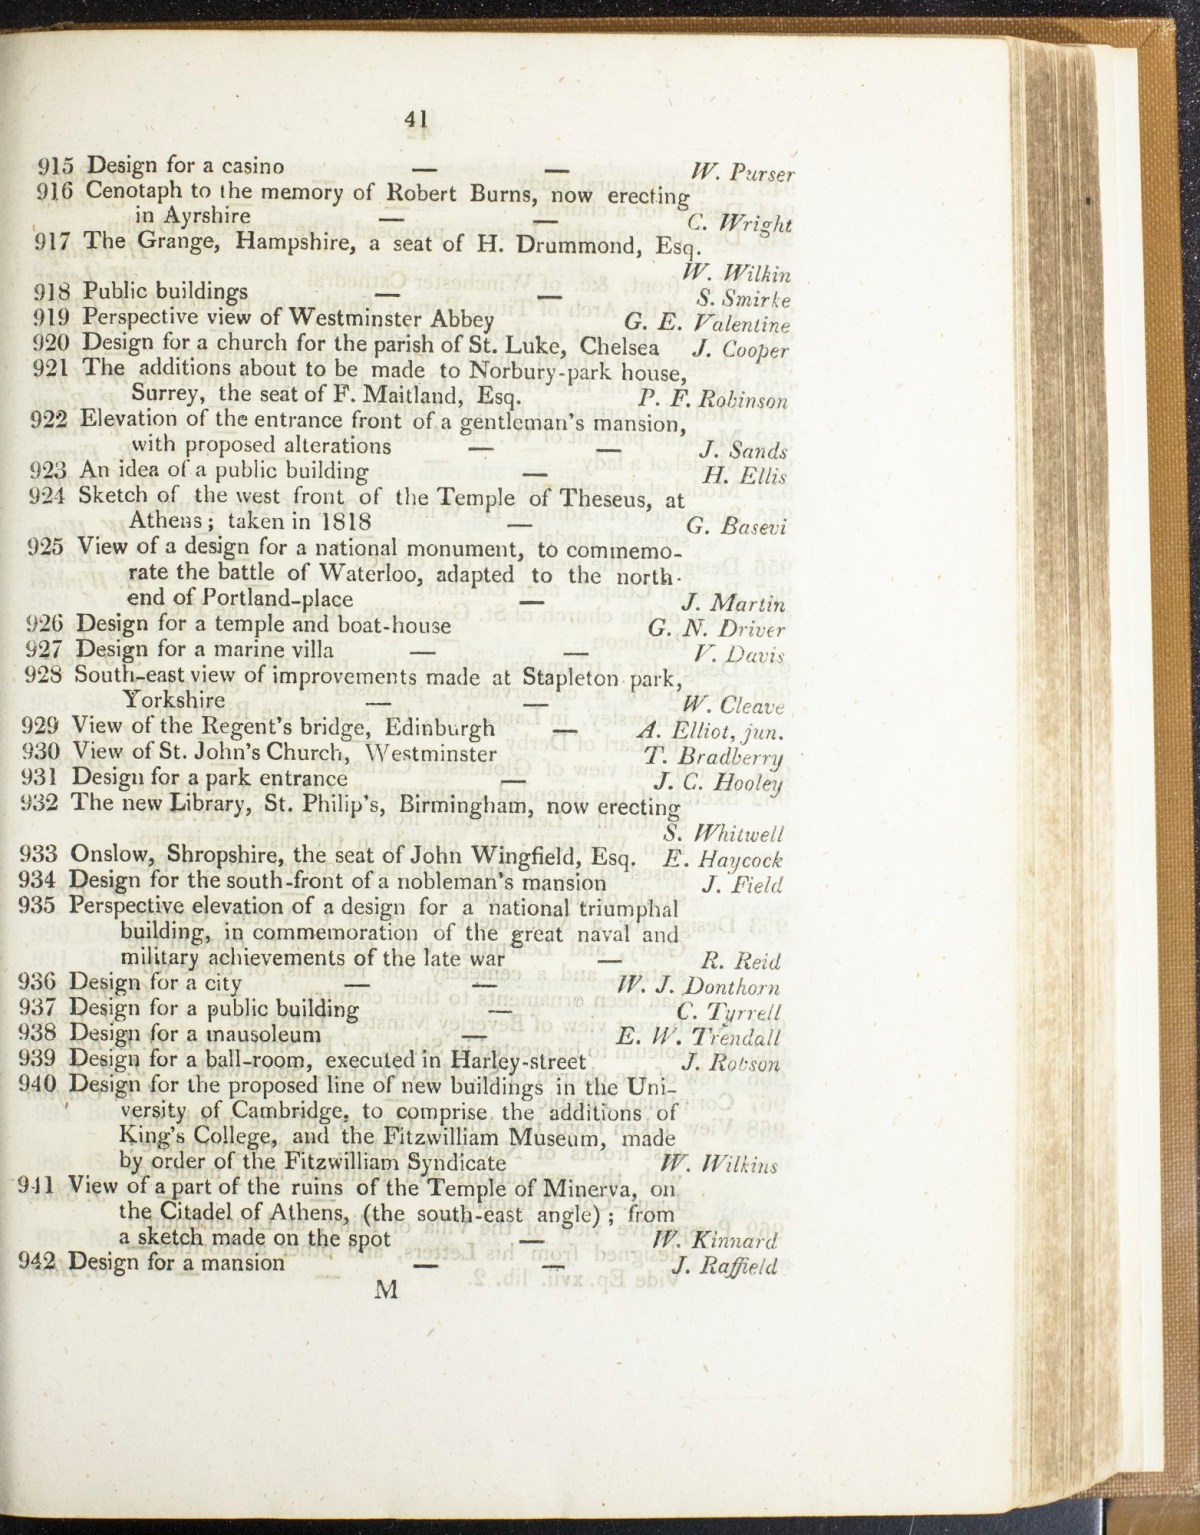 41
915 Design for a casino — — W. Purser
916 Cenotaph to the memory of Robert Burns, now erecting
in Ayrshire — — C. Wright
917 The Grange, Hampshire, a seat of H. Drummond, Esq.
W. Wilkin
918 Public buildings — — S. Smirke
919 Perspective view of Westminster Abbey G. E. Valentine
920 Design for a church for the parish of St. Luke, Chelsea J. Cooper
921 The additions about to be made to Norbury-park house,
Surrey, the seat of F. Maitland, Esq. P. F. Robinson
922 Elevation of the entrance front of a gentleman's mansion,
with proposed alterations — — J. Sands
923 An idea of a public building — H. Ellis
924 Sketch of the west front of the Temple of Theseus, at
Athens; taken in 1818 — G. Basevi
925 View of a design for a national monument, to commemo-
rate the battle of Waterloo, adapted to the north-
end of Portland-place — J. Martin
926 Design for a temple and boat-house G. N. Driver
927 Design for a marine villa — — V. Davis
928 South-east view of improvements made at Stapleton park,
Yorkshire — — W. Cleave
929 View of the Regent's bridge, Edinburgh — A. Elliot, jun.
930 View of St. John's Church, Westminster T. Bradberry
931 Design for a park entrance — J. C. Hooley
932 The new Library, St. Philip's, Birmingham, now erecting
S. Whitwell
933 Onslow, Shropshire, the seat of John Wingfield, Esq. E. Haycock
934 Design for the south-front of a nobleman's mansion J. Field
935 Perspective elevation of a design for a national triumphal
building, in commemoration of the great naval and
military achievements of the late war — R. Reid
936 Design for a city — — W. J. Donthorn
937 Design for a public building — C. Tyrrell
938 Design for a mausoleum — E. W. Trendall
939 Design for a ball-room, executed in Harley-street J. Robson
940 Design for the proposed line of new buildings in the Uni-
versity of Cambridge, to comprise the additions of
King's College, and the Fitzwilliam Museum, made
by order of the Fitzwilliam Syndicate W. Wilkins
941 View of a part of the ruins of the Temple of Minerva, on
the Citadel of Athens, (the south-east angle); from
a sketch made on the spot — W. Kinnard
942 Design for a mansion — — J. Raffield
M